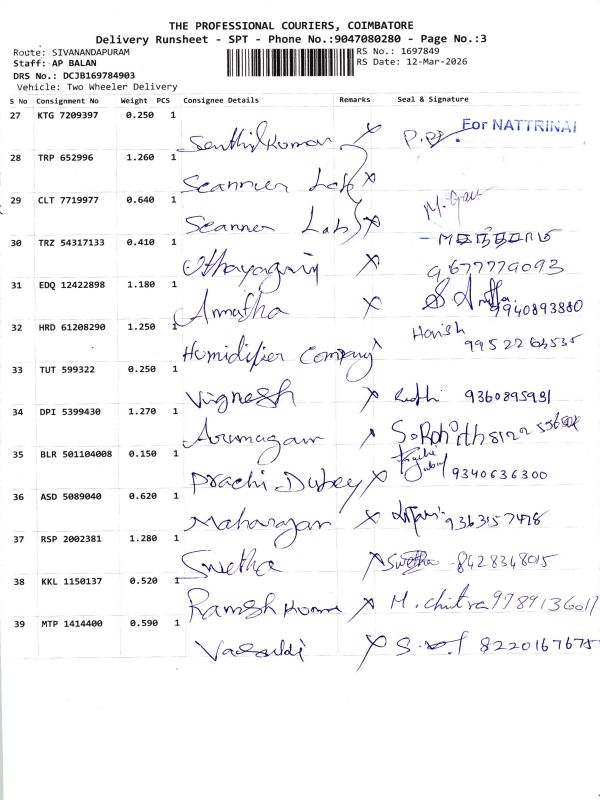 THE PROFESSIONAL COURIERS, COIMBATORE
Delivery Runsheet - SPT - Phone No.:9047080280 - Page No.:3
Route: SIVANANDAPURAM
Staff: AP BALAN
DRS No.: DCJB169784903
Vehicle: Two Wheeler Delivery
RS No.: 1697849
RS Date: 12-Mar-2026
S No Consignment No Weight PCS Consignee Details Remarks Seal & Signature
27 KTG 7209397 0.250 1
Senthilkumar x For NATTRINAI
28 TRP 652996 1.260 1
Scanner Lab x
29 CLT 7719977 0.640 1
Scanner Lab x
30 TRZ 54317133 0.410 1
Othayagiri x 9677779093
31 EDQ 12422898 1.180 1
Amutha x 9940893880
32 HRD 61208290 1.250 1
Humidifier Company Harish
33 TUT 599322 0.250 1
Vignesh x 9360895931
34 DPI 5399430 1.270 1
Arumugam x
35 BLR 501104008 0.150 1
Prachi Dubey x 9340636300
36 ASD 5089040 0.620 1
Maharajan x 9363157478
37 RSP 2002381 1.280 1
Swetha x Swetha 8428348015
38 KKL 1150137 0.520 1
Ramesh Kumar x M. chitra 9789136011
39 MTP 1414400 0.590 1
x 8220167675